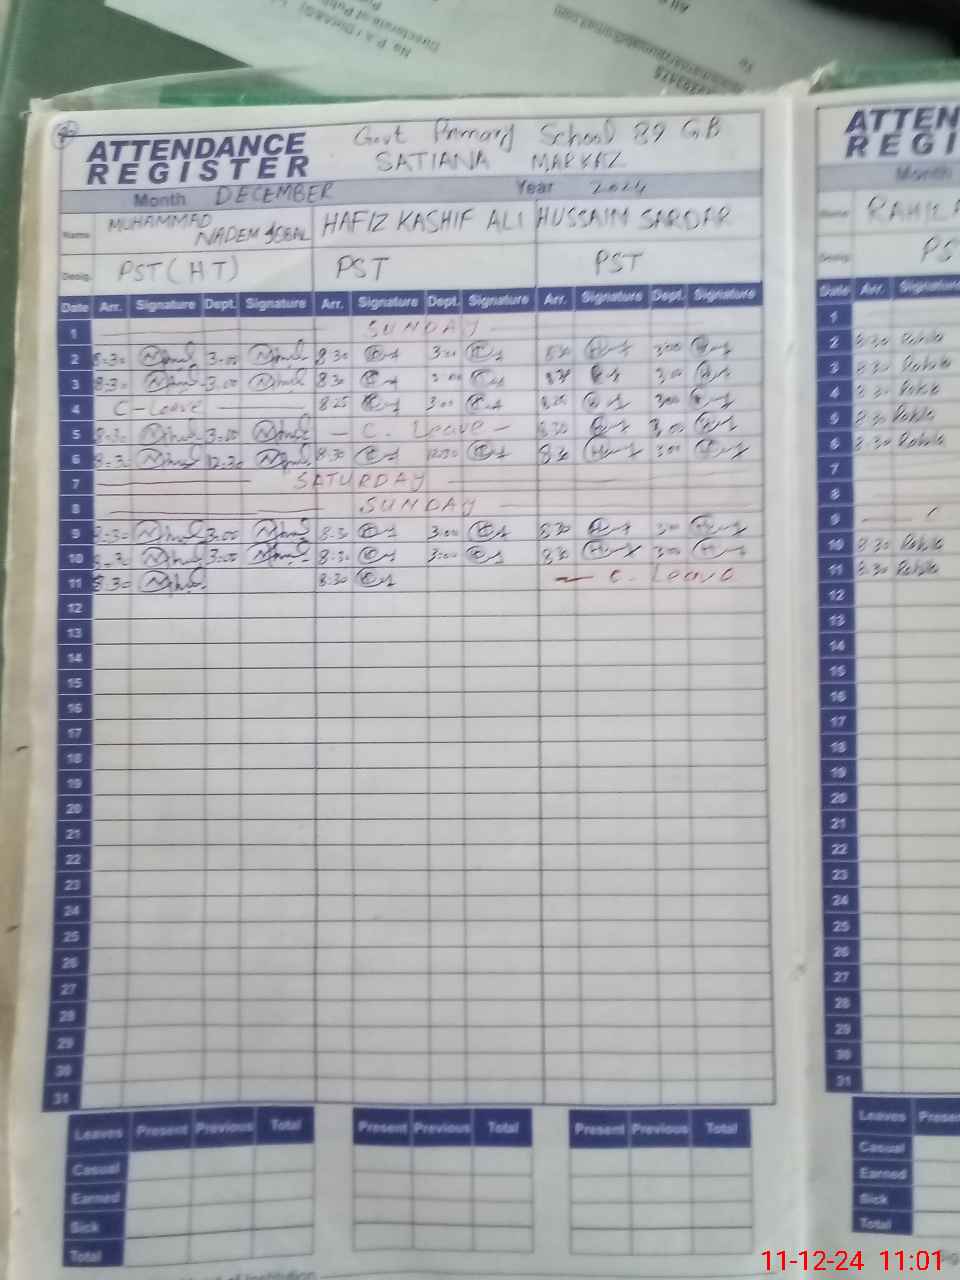 ATTENDANCE REGISTER
Govt Primary School 89 GB
SATIANA MARKAZ
Month DECEMBER Year 2024
Name MUHAMMAD NADEM IQBAL HAFIZ KASHIF ALI HUSSAIN SARDAR
Desig. PST (HT) PST PST
Date Arr. Signature Dept. Signature Arr. Signature Dept. Signature Arr. Signature Dept. Signature
1 SUNDAY
2 8:30 3:00 8:30 3:00 8:30 3:00
3 8:30 3:00 8:30 3:00 8:30 3:00
4 C-Leave 8:25 3:00 8:25 3:00
5 8:30 3:00 C. Leave 8:30 3:00
6 8:30 12:30 8:30 12:30 8:30 3:00
7 SATURDAY
8 SUNDAY
9 8:30 3:00 8:30 3:00 8:30 3:00
10 8:30 3:00 8:30 3:00 8:30 3:00
11 8:30 8:30 C. Leave
12
13
14
15
16
17
18
19
20
21
22
23
24
25
26
27
28
29
30
31
Leaves Present Previous Total Present Previous Total Present Previous Total
Casual
Earned
Sick
Total
ATTEN
REGI
Month
PS
Date Arr. Signature
1
2 8:30 Rahila
3 8:30 Rahila
4 8:30 Rahila
5 8:30 Rahila
6 8:30 Rahila
7
8
9 C
10 8:30 Rahila
11 8:30 Rahila
12
13
14
15
16
17
18
19
20
21
22
23
24
25
26
27
28
29
30
31
Leaves Prese
Casual
Earned
Sick
Total
11-12-24 11:01